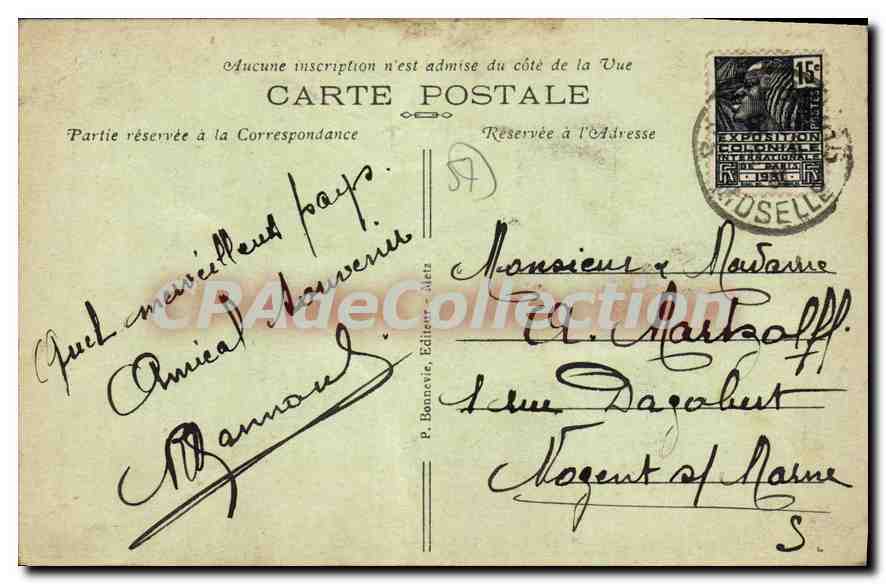 Aucune inscription n'est admise du côté de la Vue
CARTE POSTALE
Partie réservée à la Correspondance
Réservée à l'Adresse
15c
POSTES
EXPOSITION
COLONIALE
INTERNATIONALE
DE PARIS
1931
MOSELLE
57
Quel merveilleux pays.
Amical Souvenir
P. Bonnevie, Editeur - Metz
Monsieur & Madame
A. Martzolff.
1 rue Dagobert
Nogent s/ Marne
S.
CPAdeCollection